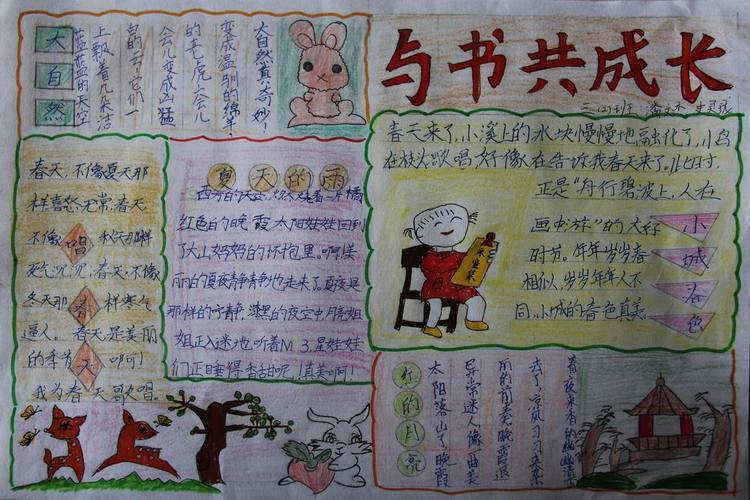 与书共成长
三(2)制作:
大自然
大自然真奇妙!
蓝蓝的天空
上飘着几朵洁
白的云,它们一
会儿变成凶猛
的老虎,一会儿
变成温驯的绵羊
春天,不像夏天那
样喜怒无常,春天
不像秋天那样
死气沉沉,春天,不像
冬天那样寒气
逼人。春天是美丽
的季节,啊!
我为春天歌唱。
唱春天
夏天的雨
西方的天空,燃烧着一片橘
红色的晚霞,太阳娃娃回到
了大山妈妈的怀抱里。啊!美
丽的夏夜静静地走来了。夏夜是
那样的宁静,漆黑的夜空中,月亮姐
姐正入迷地听着M3,星娃娃
们正睡得香甜呢!真美啊!
春天来了,小溪上的冰块慢慢地融化了,小鸟
在枝头歌唱,好像在告诉我春天来了。此时,
正是“舟行碧波上,人在
画中游”的大好
时节。年年岁岁春
相似,岁岁年年人不
同,小城的春色真美
小城春色
红的月亮
太阳落山了,晚霞
异常迷人,像一曲美
丽的前奏,晚霞退
去了,凉风习习